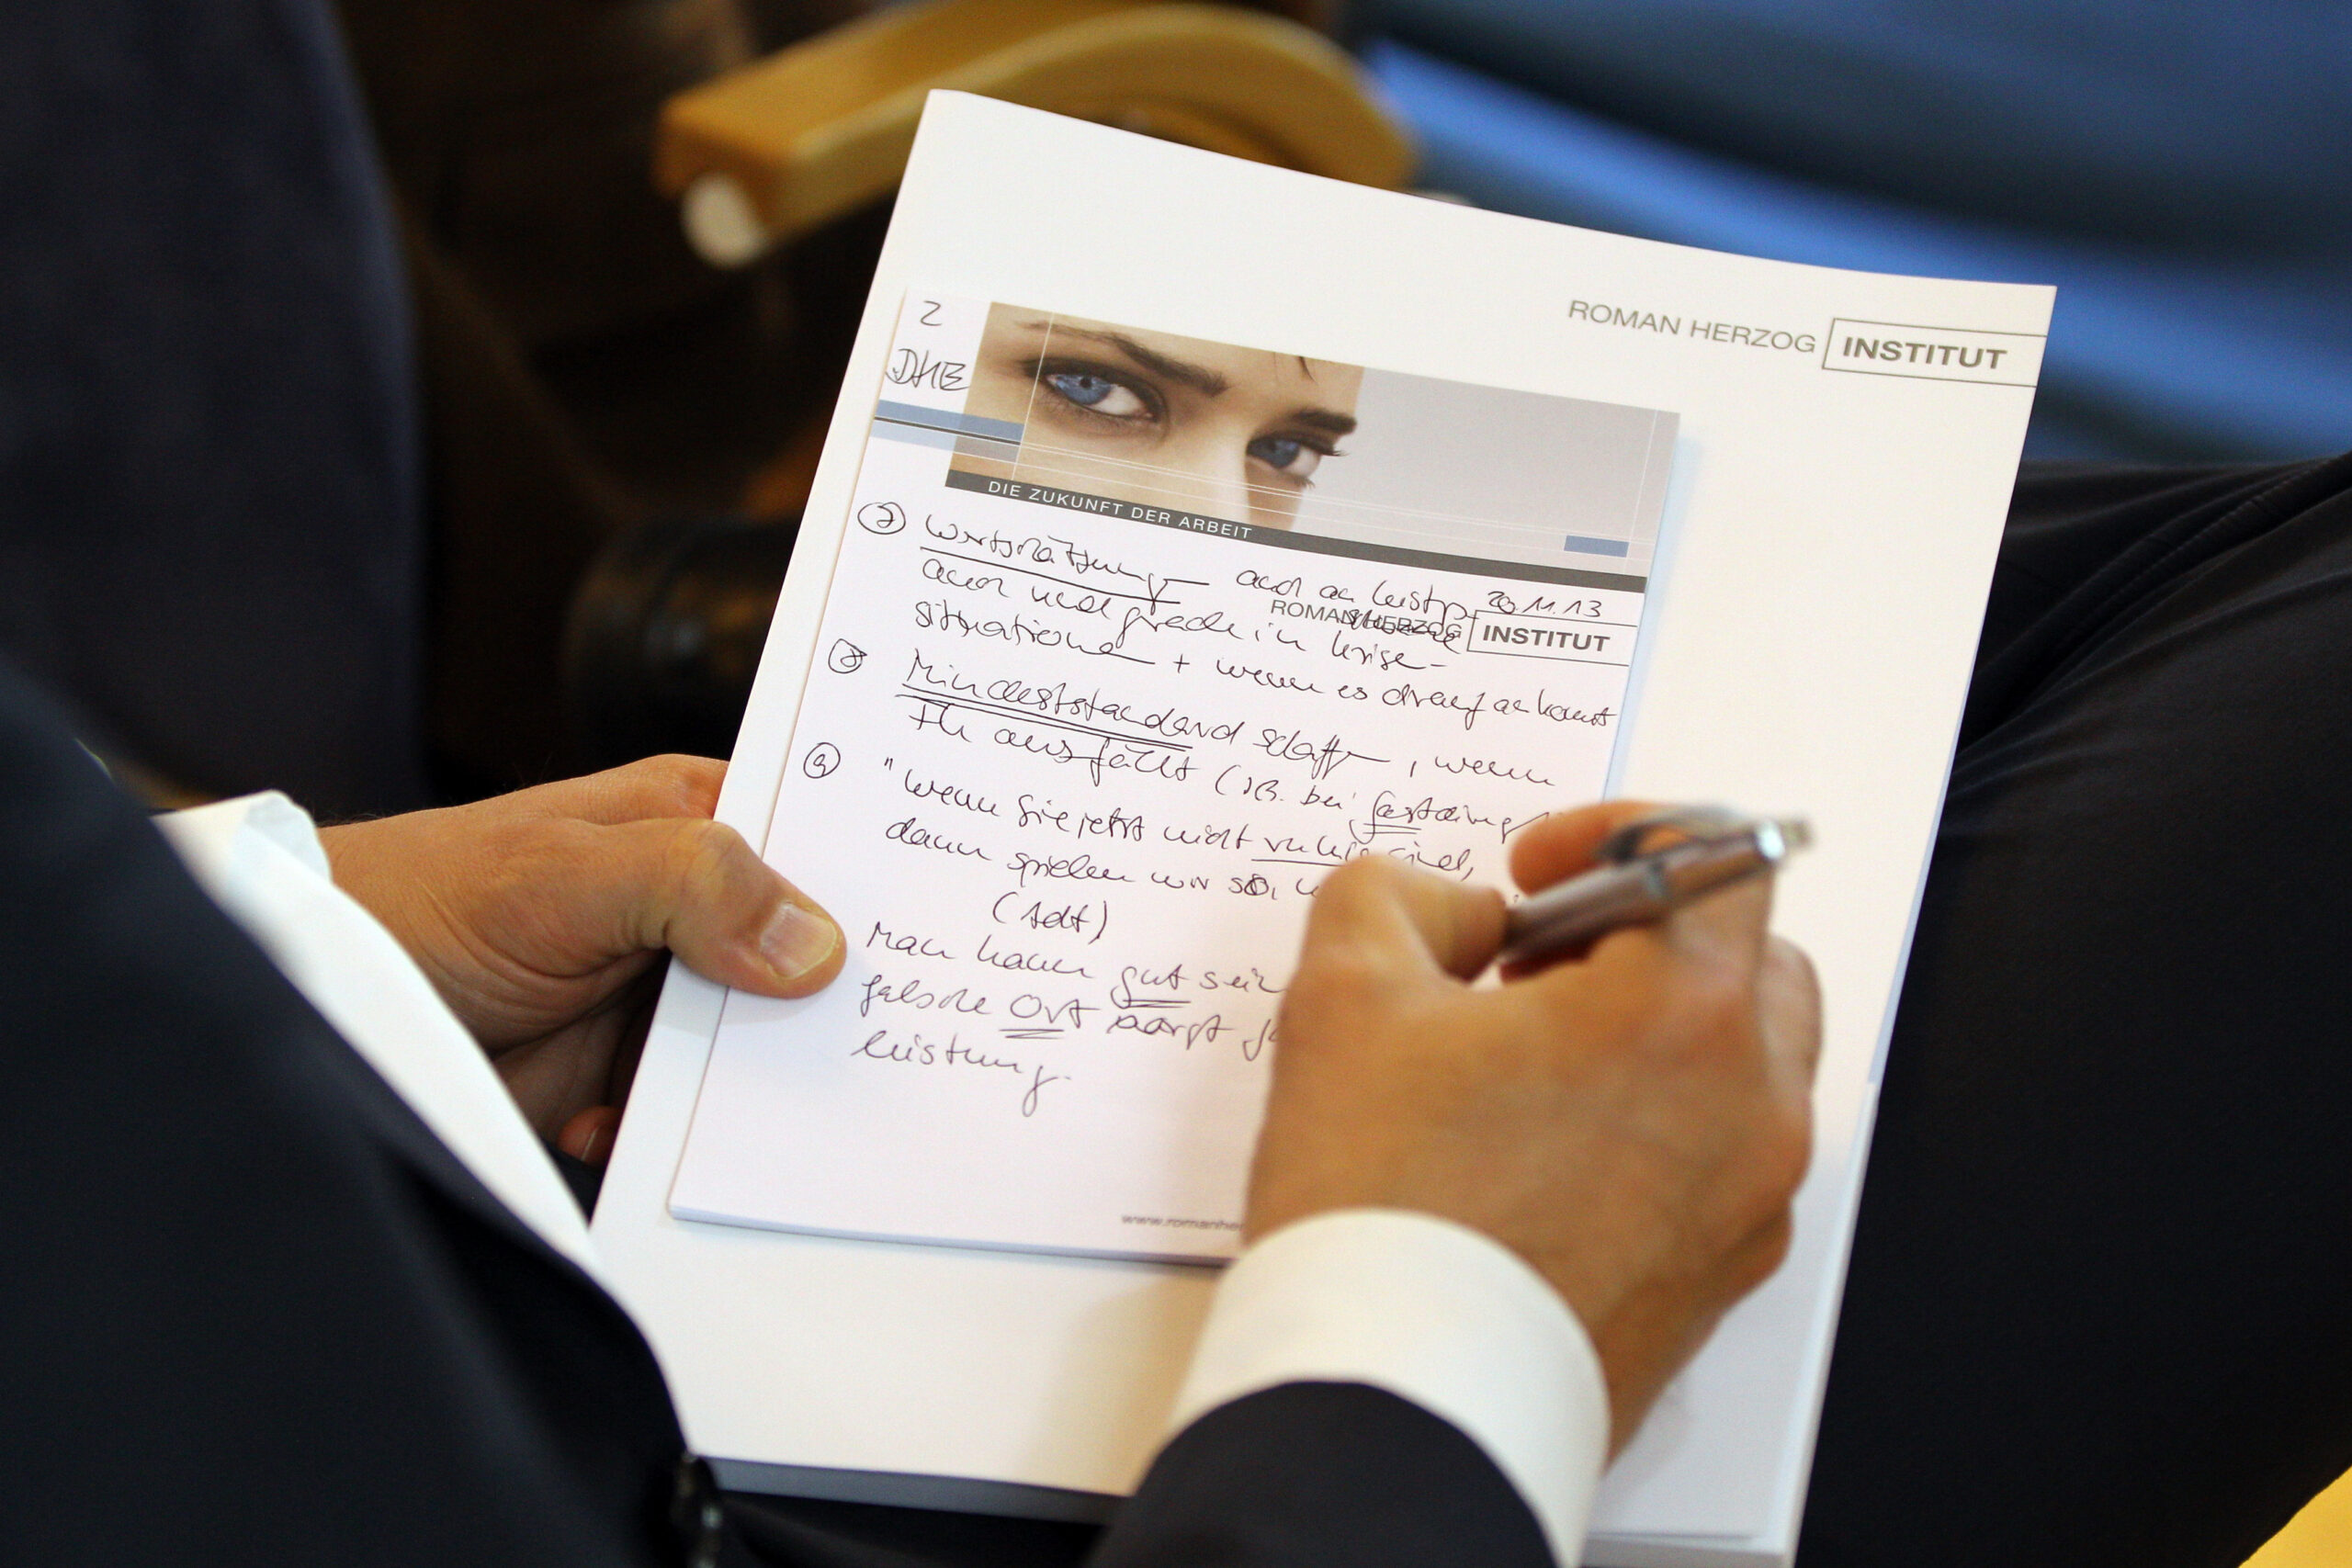 ROMAN HERZOG INSTITUT
2
DHB
DIE ZUKUNFT DER ARBEIT
20.11.13
ROMAN HERZOG INSTITUT
⑦ Wertschätzung auch an Leistg
auch und grade in Krise-
situationen + wenn es drauf ankommt
⑧ Mindeststandard schaffen, wenn
ausfällt (z.B. bei
⑨ "Wenn Sie jetzt nicht ruhig sind,
dann spielen wir
Man kann gut sein
falsche Ort
leistung.
www.romanhe